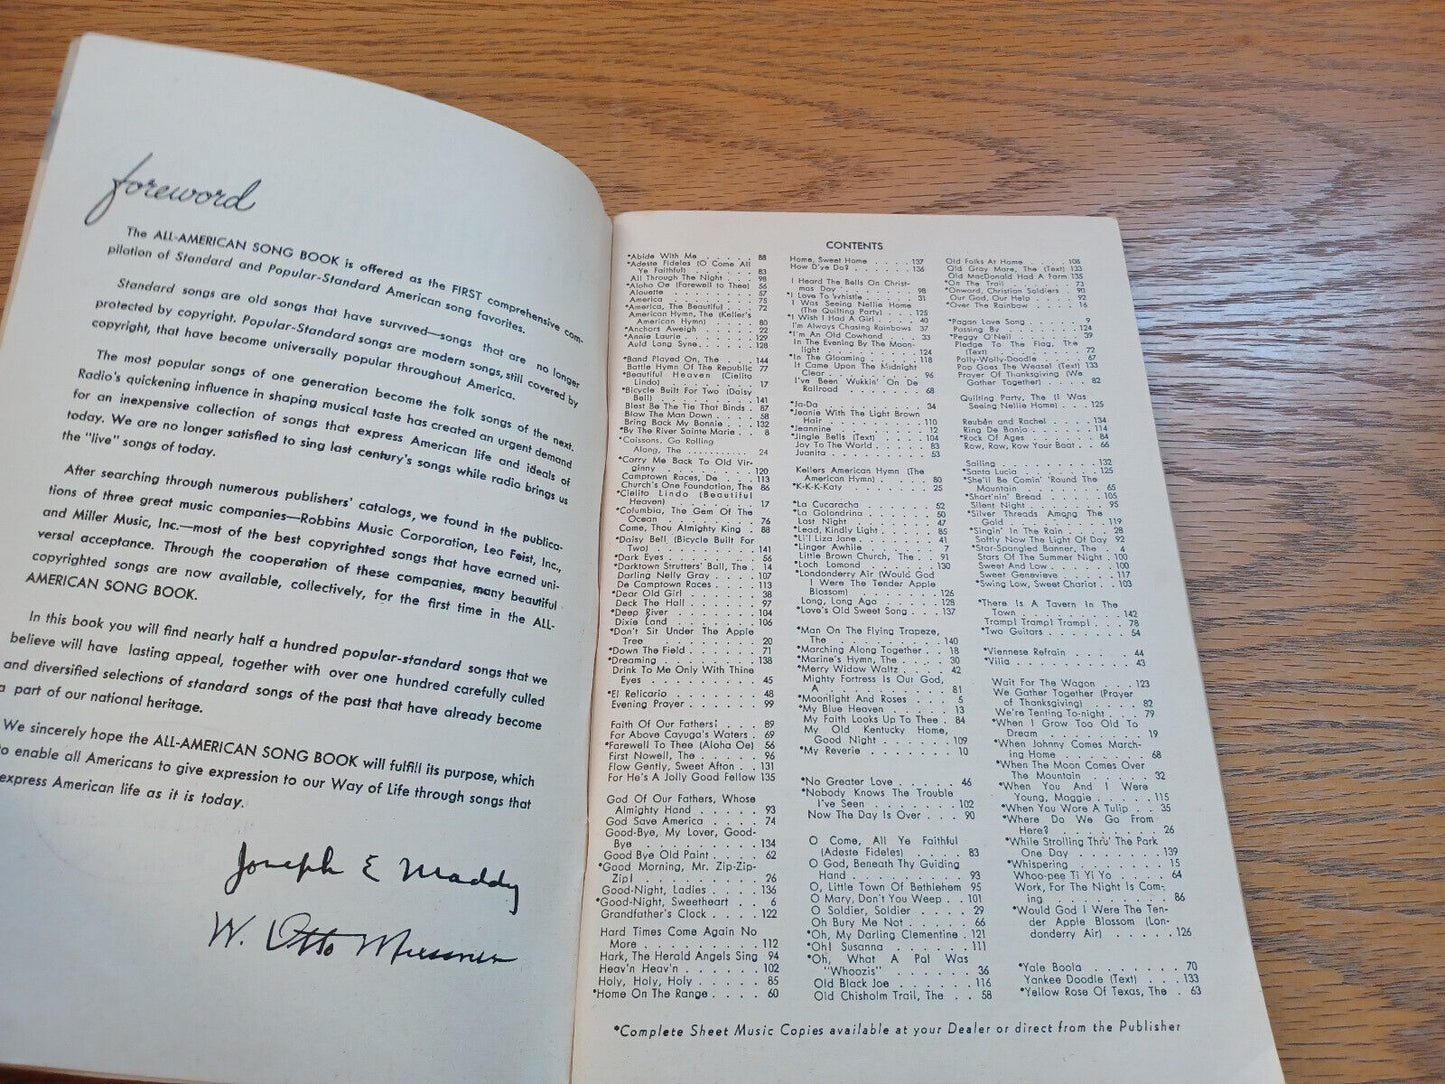 foreword
The ALL-AMERICAN SONG BOOK is offered as the FIRST comprehensive com-
pilation of Standard and Popular-Standard American song favorites.
Standard songs are old songs that have survived—songs that are no longer
protected by copyright. Popular-Standard songs are modern songs, still covered by
copyright, that have become universally popular throughout America.
The most popular songs of one generation become the folk songs of the next.
Radio's quickening influence in shaping musical taste has created an urgent demand
for an inexpensive collection of songs that express American life and ideals of
today. We are no longer satisfied to sing last century's songs while radio brings us
the "live" songs of today.
After searching through numerous publishers' catalogs, we found in the publica-
tions of three great music companies—Robbins Music Corporation, Leo Feist, Inc.,
and Miller Music, Inc.—most of the best copyrighted songs that have earned uni-
versal acceptance. Through the cooperation of these companies, many beautiful
copyrighted songs are now available, collectively, for the first time in the ALL-
AMERICAN SONG BOOK.
In this book you will find nearly half a hundred popular-standard songs that we
believe will have lasting appeal, together with over one hundred carefully culled
and diversified selections of standard songs of the past that have already become
a part of our national heritage.
We sincerely hope the ALL-AMERICAN SONG BOOK will fulfill its purpose, which
to enable all Americans to give expression to our Way of Life through songs that
express American life as it is today.
Joseph E Maddy
W. Otto Miessner
CONTENTS
*Abide With Me . . . . . 88
*Adeste Fideles (O Come All
Ye Faithful) . . . . . 83
All Through The Night . . . 98
*Aloha Oe (Farewell to Thee) 56
Alouette . . . . . 57
America . . . . . 75
*America, The Beautiful . . . 72
American Hymn, The (Keller's
American Hymn) . . . . 80
*Anchors Aweigh . . . . 22
*Annie Laurie . . . . . 129
Auld Lang Syne . . . . . 128
*Band Played On, The . . . 144
Battle Hymn Of The Republic 77
*Beautiful Heaven (Cielito
Lindo) . . . . . 17
*Bicycle Built For Two (Daisy
Bell) . . . . . 141
Blest Be The Tie That Binds . 87
Blow The Man Down . . . 58
Bring Back My Bonnie . . . 132
*By The River Sainte Marie . . 8
*Caissons Go Rolling
Along, The . . . . . 24
*Carry Me Back To Old Vir-
ginny . . . . . 120
Camptown Races, De . . . 113
Church's One Foundation, The 86
*Cielito Lindo (Beautiful
Heaven) . . . . . 17
*Columbia, The Gem Of The
Ocean . . . . . 76
Come, Thou Almighty King . 88
*Daisy Bell (Bicycle Built For
Two) . . . . . 141
*Dark Eyes . . . . . 56
*Darktown Strutters' Ball, The . 14
Darling Nelly Gray . . . . 107
De Camptown Races . . . 113
*Dear Old Girl . . . . . 38
Deck The Hall . . . . . 97
*Deep River . . . . . 104
Dixie Land . . . . . 106
*Don't Sit Under The Apple
Tree . . . . . 20
*Down The Field . . . . . 71
*Dreaming . . . . . 138
Drink To Me Only With Thine
Eyes . . . . . 45
*El Relicario . . . . . 48
Evening Prayer . . . . . 99
Faith Of Our Fathers! . . . 89
For Above Cayuga's Waters . 69
*Farewell To Thee (Aloha Oe) 56
First Nowell, The . . . . 96
Flow Gently, Sweet Afton . . 131
For He's A Jolly Good Fellow 135
God Of Our Fathers, Whose
Almighty Hand . . . . 93
God Save America . . . . 74
Good-Bye, My Lover, Good-
Bye . . . . . 134
Good Bye Old Paint . . . . 62
*Good Morning, Mr. Zip-Zip-
Zip! . . . . . 26
Good-Night, Ladies . . . . 136
*Good-Night, Sweetheart . . . 6
Grandfather's Clock . . . . 122
Hard Times Come Again No
More . . . . . 112
Hark, The Herald Angels Sing 94
Heav'n Heav'n . . . . . 102
Holy, Holy, Holy . . . . 85
*Home On The Range . . . . 60
Home, Sweet Home . . . . 137
How D'ye Do? . . . . . 136
I Heard The Bells On Christ-
mas Day . . . . . 98
*I Love To Whistle . . . . 31
I Was Seeing Nellie Home
(The Quilting Party) . . . 125
*I Wish I Had A Girl . . . . 40
I'm Always Chasing Rainbows 37
*I'm An Old Cowhand . . . 33
In The Evening By The Moon-
light . . . . . 124
*In The Gloaming . . . . 118
It Came Upon The Midnight
Clear . . . . . 96
I've Been Wukkin' On De
Railroad . . . . . 68
*Ja-Da . . . . . 34
*Jeanie With The Light Brown
Hair . . . . . 110
*Jeannine . . . . . 12
*Jingle Bells (Text) . . . . 104
Joy To The World . . . . 83
Juanita . . . . . 53
Kellers American Hymn (The
American Hymn) . . . . 80
*K-K-K-Katy . . . . . 25
*La Cucaracha . . . . . 52
*La Golondrina . . . . . 50
Last Night . . . . . 47
*Lead, Kindly Light . . . . 85
*Li'l Liza Jane . . . . . 41
*Linger Awhile . . . . . 7
Little Brown Church, The . . 91
*Loch Lomond . . . . . 130
*Londonderry Air (Would God
I Were The Tender Apple
Blossom) . . . . . 126
Long, Long Ago . . . . . 128
*Love's Old Sweet Song . . . 137
*Man On The Flying Trapeze,
The . . . . . 140
*Marching Along Together . . 18
*Marine's Hymn, The . . . 30
*Merry Widow Waltz . . . 42
Mighty Fortress Is Our God,
A . . . . . 81
*Moonlight And Roses . . . 5
*My Blue Heaven . . . . 13
My Faith Looks Up To Thee . 84
My Old Kentucky Home,
Good Night . . . . . 109
*My Reverie . . . . . 10
*No Greater Love . . . . 46
*Nobody Knows The Trouble
I've Seen . . . . . 102
Now The Day Is Over . . . 90
O Come, All Ye Faithful
(Adeste Fideles) . . . . 83
O God, Beneath Thy Guiding
Hand . . . . . 93
O, Little Town Of Bethlehem 95
O Mary, Don't You Weep . . 101
O Soldier, Soldier . . . . 29
Oh Bury Me Not . . . . 66
*Oh, My Darling Clementine . 121
*Oh! Susanna . . . . . 111
*Oh, What A Pal Was
"Whoozis" . . . . . 36
Old Black Joe . . . . . 116
Old Chisholm Trail, The . . 58
Old Folks At Home . . . . 108
Old Gray Mare, The (Text) 133
Old MacDonald Had A Farm 135
*On The Trail . . . . . 73
*Onward, Christian Soldiers . 90
Our God, Our Help . . . . 92
*Over The Rainbow . . . . 16
*Pagan Love Song . . . . 9
Passing By . . . . . 124
*Peggy O'Neil . . . . . 39
Pledge To The Flag, The
(Text) . . . . . 72
Polly-Wolly-Doodle . . . . 67
Pop Goes The Weasel (Text) 133
Prayer Of Thanksgiving (We
Gather Together) . . . . 82
Quilting Party, The (I Was
Seeing Nellie Home) . . . 125
Reuben and Rachel . . . . 134
Ring De Banjo . . . . . 114
*Rock Of Ages . . . . . 84
Row, Row, Row Your Boat . . 66
Sailing . . . . . 132
*Santa Lucia . . . . . 125
*She'll Be Comin' 'Round The
Mountain . . . . . 65
*Short'nin' Bread . . . . 105
Silent Night . . . . . 95
*Silver Threads Among The
Gold . . . . . 119
*Singin' In The Rain . . . . 28
Softly Now The Light Of Day 92
*Star-Spangled Banner, The . 4
Stars Of The Summer Night . 100
Sweet And Low . . . . . 100
Sweet Genevieve . . . . 117
*Swing Low, Sweet Chariot . 103
*There Is A Tavern In The
Town . . . . . 142
Tramp! Tramp! Tramp! . . . 78
*Two Guitars . . . . . 54
*Viennese Refrain . . . . 44
*Villa . . . . . 43
Wait For The Wagon . . . 123
We Gather Together (Prayer
of Thanksgiving) . . . . 82
We're Tenting To-night . . . 79
*When I Grow Too Old To
Dream . . . . . 19
*When Johnny Comes March-
ing Home . . . . . 68
*When The Moon Comes Over
The Mountain . . . . . 32
*When You And I Were
Young, Maggie . . . . . 115
*When You Wore A Tulip . . 35
*Where Do We Go From
Here? . . . . . 26
*While Strolling Thru' The Park
One Day . . . . . 139
*Whispering . . . . . 15
Whoo-pee Ti Yi Yo . . . . 64
Work, For The Night Is Com-
ing . . . . . 86
*Would God I Were The Ten-
der Apple Blossom (Lon-
donderry Air) . . . . . 126
*Yale Boola . . . . . 70
Yankee Doodle (Text) . . . 133
*Yellow Rose Of Texas, The . 63
*Complete Sheet Music Copies available at your Dealer or direct from the Publisher